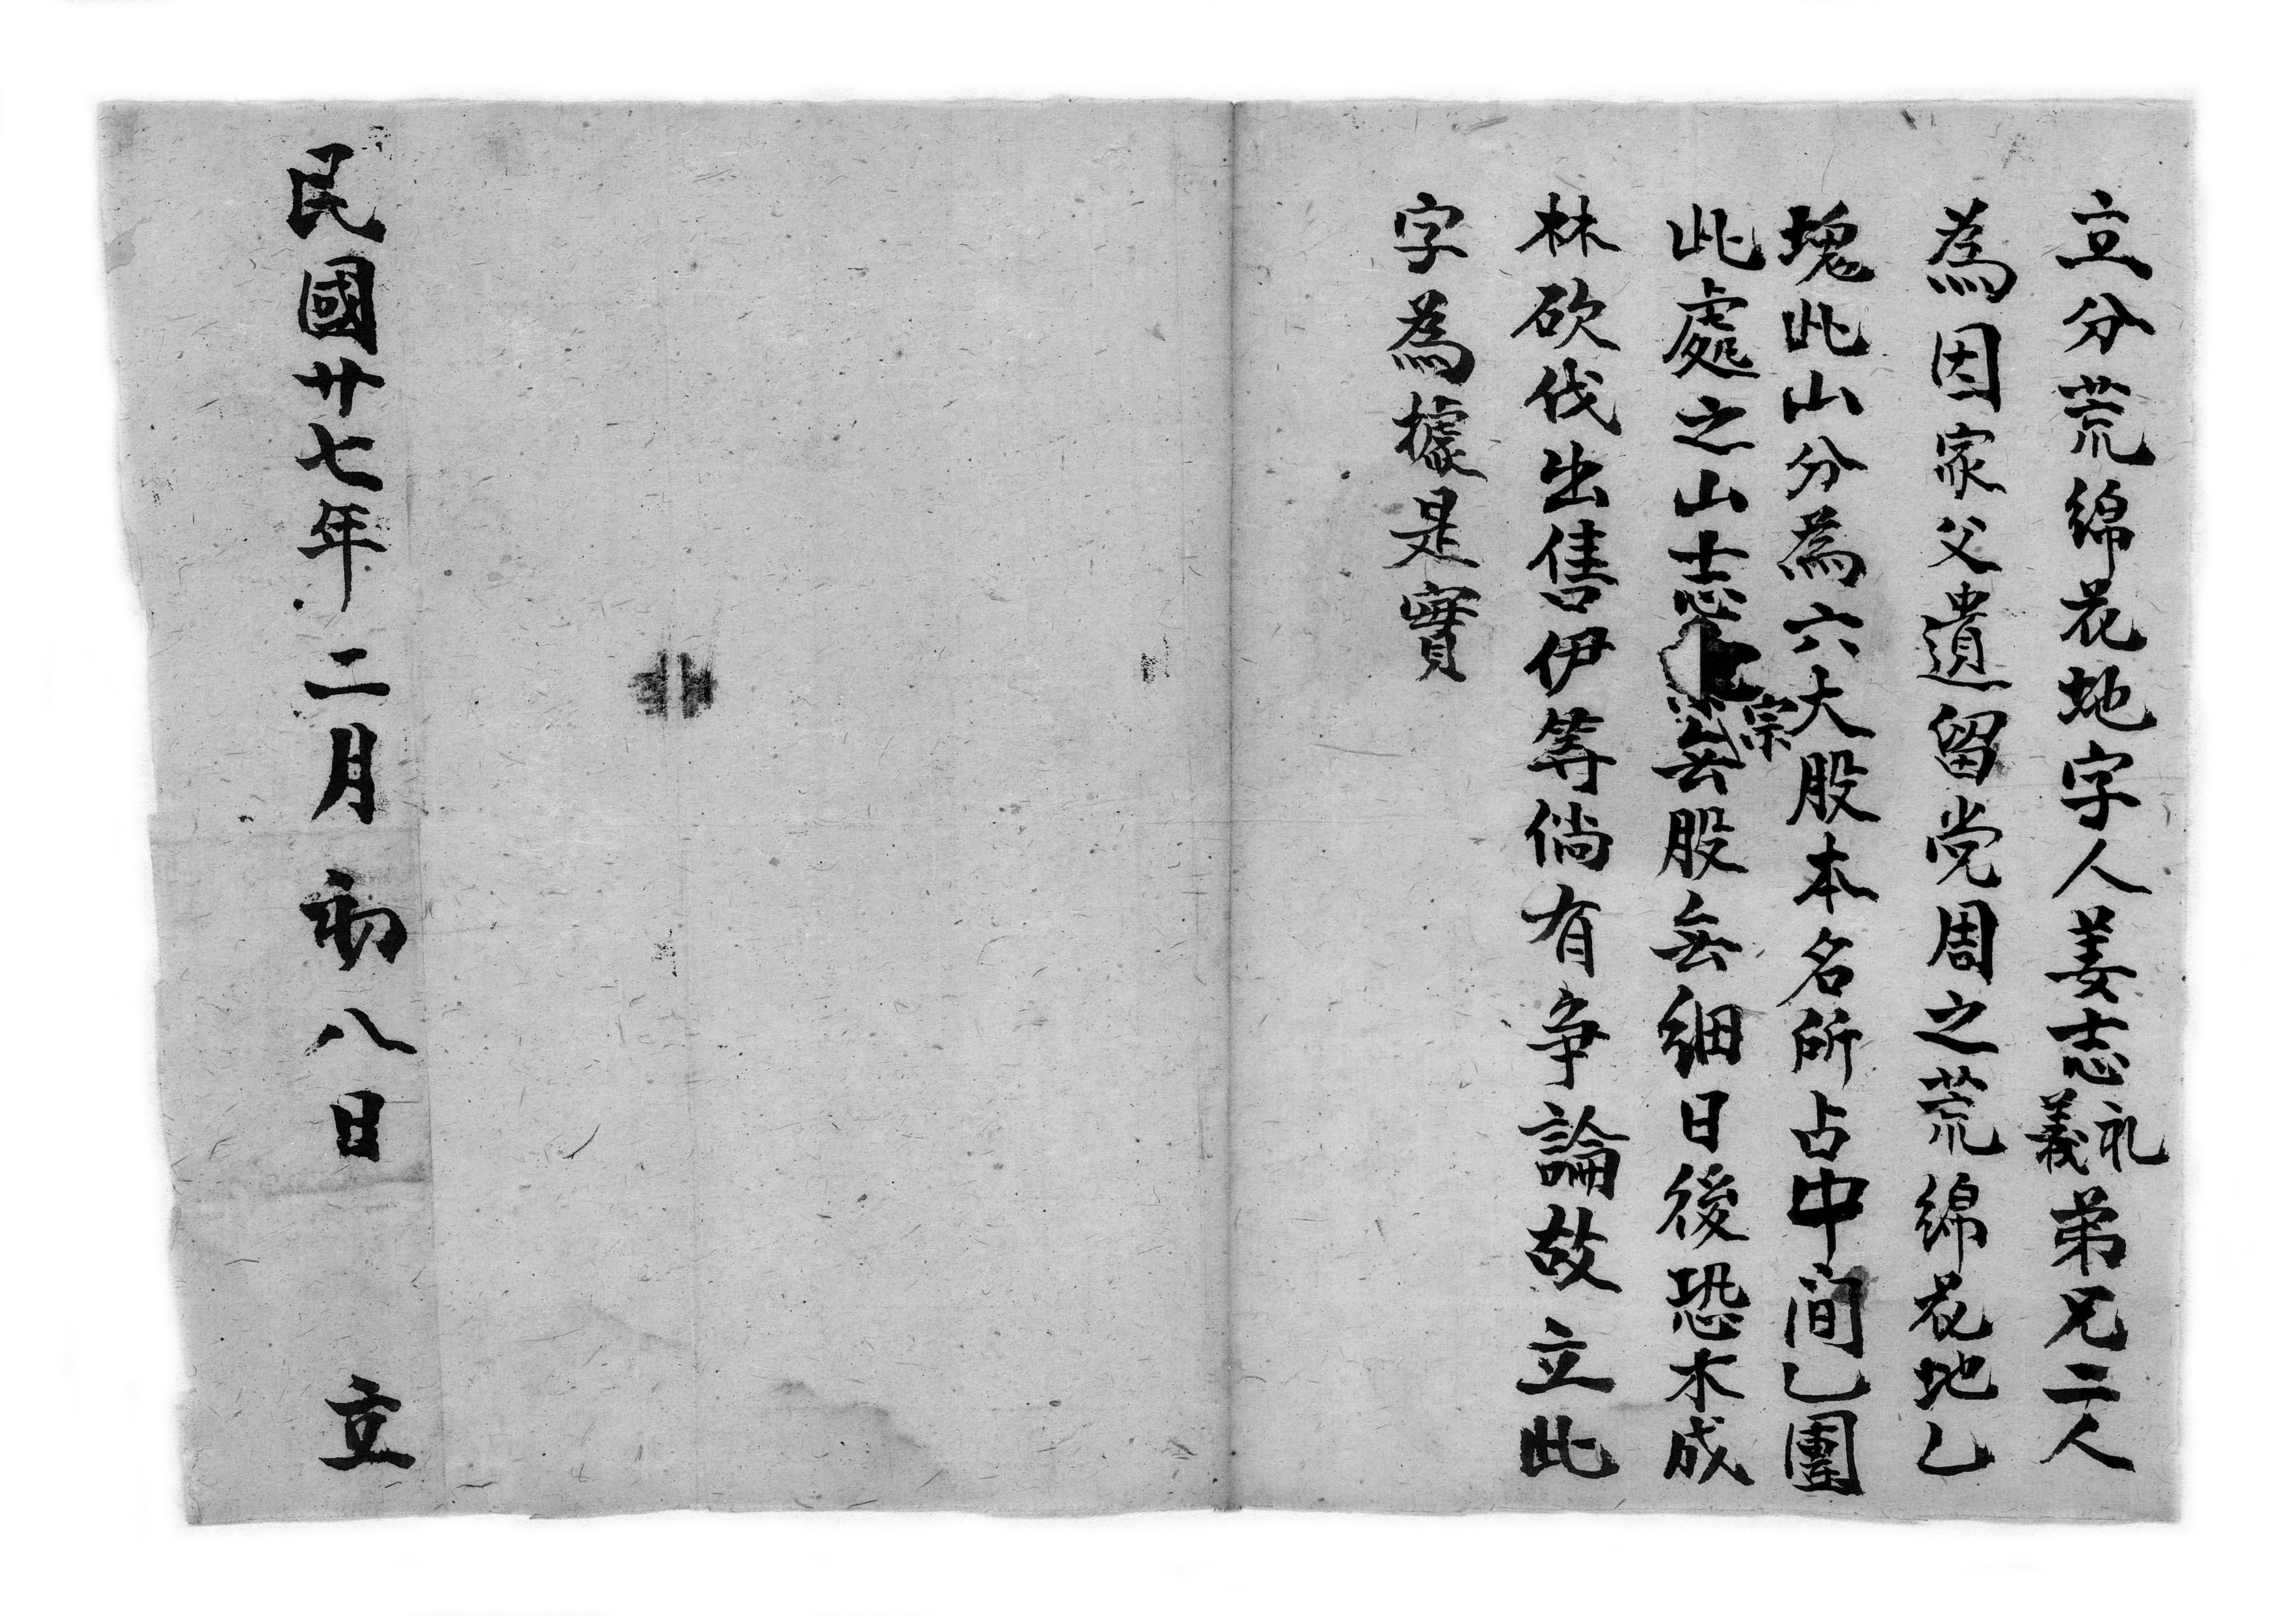 立分荒綿花地字人姜志礼義弟兄二人
為因家父遺留党周之荒綿花地乙
塊此山分為六大股本名所占中間乙團
此處之山士志宗無股無細日後恐木成
林砍伐出售伊等倘有争論故立此
字為據是實
民國廿七年二月初八日 立